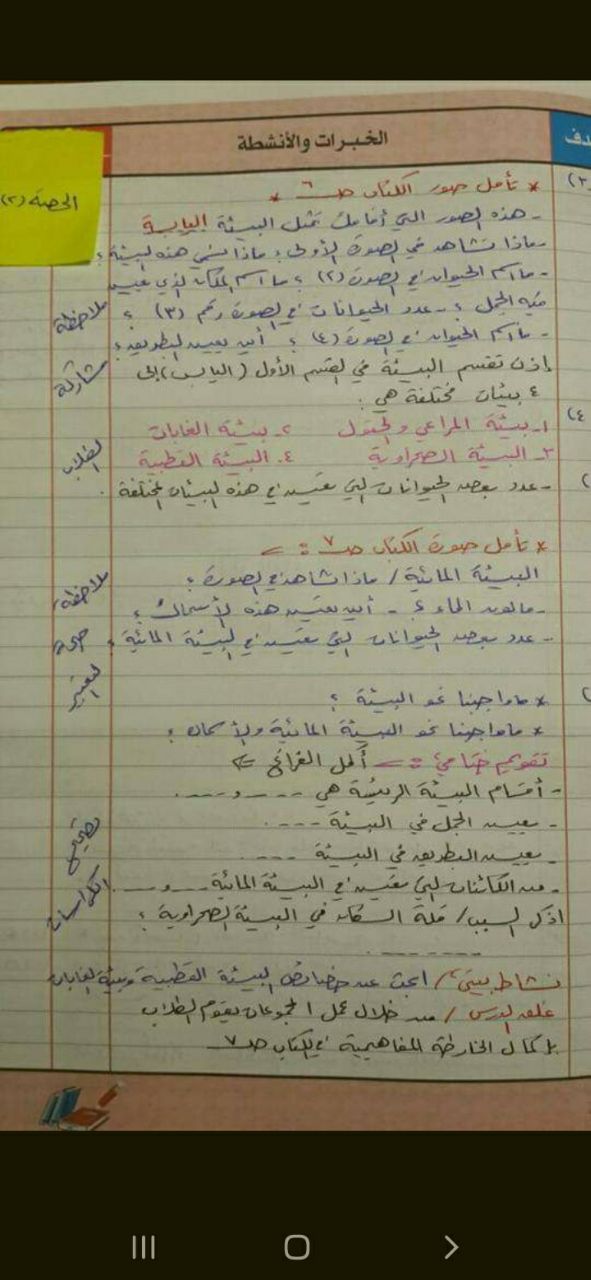 الخبرات والأنشطة
دف
(٣)
الحصة (٢)
* تأمل صور الكتاب صـ ٦ *
- هذه الصور التي أمامك تمثل البيئة اليابسة
- ماذا تشاهد في الصورة الأولى؟ ماذا نسمي هذه البيئة؟
- ما اسم الحيوان في الصورة (٢)؟ ما اسم المكان الذي يعيش
فيه الجمل؟ - عدد الحيوانات في الصورة رقم (٣)؟
ملاحظة
- ما اسم الحيوان في الصورة (٤)؟ أين يعيش البطريق؟
إذن تقسم البيئة في القسم الأول (اليابس) إلى
مشاركة
٤ بيئات مختلفة هي:
(٤)
١- بيئة المراعي والحقول ٢- بيئة الغابات
٣- البيئة الصحراوية ٤- البيئة القطبية
الطلاب
- عدد بعض الحيوانات التي تعيش في هذه البيئات المختلفة.
* تأمل صورة الكتاب صـ ٧ :-
البيئة المائية / ماذا تشاهد في الصورة؟
ملاحظة
- ما لون الماء؟ - أين تعيش هذه الأسماك؟
- عدد بعض الحيوانات التي تعيش في البيئة المائية؟
صحة
التعبير
* ما واجبنا نحو البيئة؟
* ما واجبنا نحو البيئة المائية والأسماك؟
تقويم ختامي :- أكمل الفراغ
- أقسام البيئة الرئيسية هي ---- و ----.
- يعيش الجمل في البيئة ----.
- يعيش البطريق في البيئة ----.
تصحيح
- من الكائنات التي تعيش في البيئة المائية ---- و ----.
الكراسات
اذكر السبب / قلة السكان في البيئة الصحراوية؟
--------
نشاط بيتي / ابحث عن خصائص البيئة القطبية وبيئة الغابات
غلق الدرس / من خلال عمل المجموعات يقوم الطلاب
بإكمال الخارطة المفاهيمية في الكتاب صـ ٧